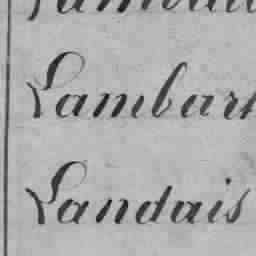 Lambart
Landais